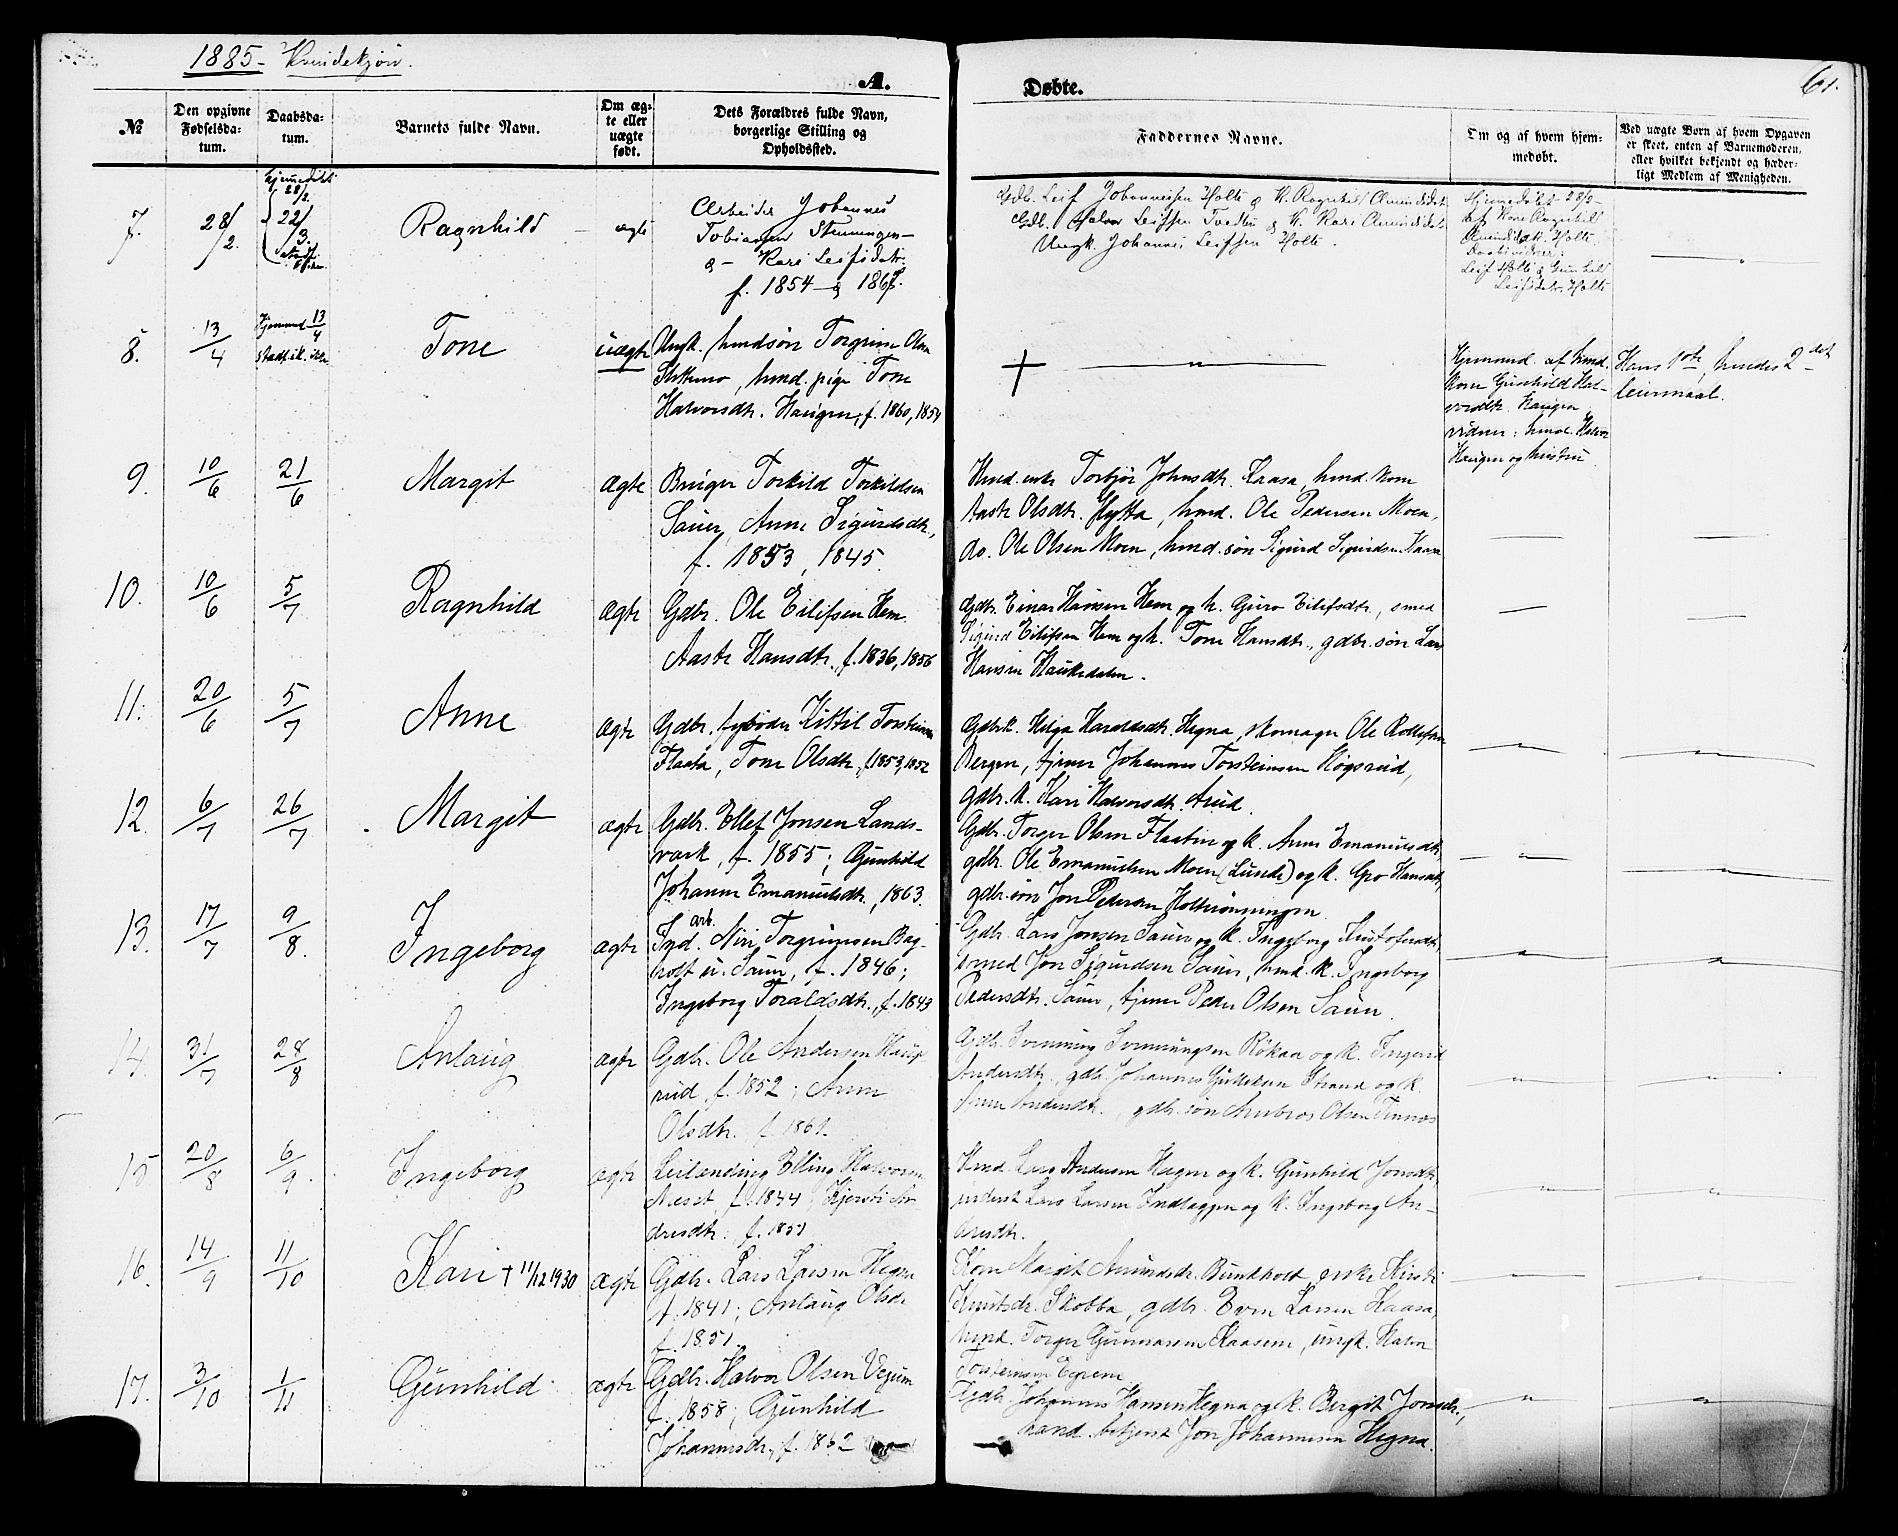 1885 - Kvindekjøn.
A.
Døbte.
61.
№
Den opgivne Fødselsda-tum.
Daabsda-tum.
Barnets fulde Navn.
Om æg-te eller uægte født.
Dets Forældres fulde Navn, borgerlige Stilling og Opholdssted.
Faddernes Navne.
Om og af hvem hjem-medøbt.
Ved uægte Børn af hvem Opgaven er skeet, enten af Barnemoderen, eller hvilket bekjendt og hæder-ligt Medlem af Menigheden.
7. 28/2. hjemedøbt 28/2. 22/3. Ragnhild - ægte
Arbeider Johannes
Tobiassen
& - Kari Leifsdtr.
f. 1854 - &
Gdb. Leif Johannessen Holte & K. Ragnhild Amundsdt.
Gdb. Halvor Leifsen Tvedten & K. Kari Amundsdt.
Ungk. Johannes Leifsen Holte.
Hjemedøbt 28/2
af Kone Ragnhild
Amundsdatt. Holte
Leif Holte & Gunhild
Leifsdatr. Holte
8. 13/4 Hjemmed. 13/4 Tone uægte
Ungk. husmdsøn Torgrim Olsen
husmd. pige Tone
Halvorsdtr. Haugen, f. 1860, 1854
+ — " —
Hjemmed. af husmd.
kone Gunhild Hal-
vorsdtr. Haugen
vidner: husmd. Halvor
Haugen og hustru
Hans 1ste, hendes 2det
leiermaal.
9. 10/6 21/6 Margit ægte
Bruger Torkild Torkildsen
Sauer, Anne Sigurdsdtr.,
f. 1853, 1845.
Husmd. enke Torbjør Johnsdtr. Kaasa, husmd. kone
Aaste Olsdtr. Hytta, husmd. Ole Pedersen Moen,
do. Ole Olsen Moen, husmd. søn Sigurd Sigurdsen Kaasa
10. 10/6 5/7 Ragnhild ægte
Gdbr. Ole Eilifsen Hem
Aaste Hansdtr., f. 1836, 1856
Gdbr. Einar Hansen Hem og k. Guro Eilifsdtr., smed
Sigurd Eilifsen Hem og k. Tone Hansdtr., gdbr. søn Lars
Hansen Haukedalen.
11. 20/6 5/7 Anne ægte
Gdbr. Kittil Torsteinsen
Flaata, Tone Olsdtr., f. 1853, 1852
Gdbr.k. Helga Haraldsdtr. Hegna, skomager Ole Rollefsen
Bergen, tjener Johannes Torsteinsen Høgsrud,
gdbr. k. Kari Halvorsdtr. Aud.
12. 6/7 26/7 Margit ægte
Gdbr. Ellef Jonsen Lands-
værk, f. 1855; Gunhild
Johanne Emanuelsdtr., 1863.
Gdbr. Torger Olsen Flaatin og k. Anne Emanuelsdtr.,
gdbr. Ole Emanuelsen Moen (Lunde) og k. Gro Hansdtr.,
gdbr. søn Jon Pedersen Holtrønningen
13. 17/7 9/8. Ingeborg ægte
Ind. arb. Niri Torgrimsen Bag-
holt u. Sauer, f. 1846;
Ingeborg Toraldsdtr., f. 1843
Gdbr. Lars Jonsen Sauer og k. Ingeborg Kristofersdtr.,
smed Jon Sigurdsen Sauer, husmd. k. Ingeborg
Pedersdtr. Sauer, tjener Peder Olsen Sauer.
14. 31/7 28/8 Anlaug ægte
Gdbr. Ole Andersen
rud, f. 1852; Anne
Olsdtr. f. 1861.
Gdbr. Svenning Svenningsen Røkaas og k. Ingerid
Andersdtr., gdb. Johannes Gulleksen Strand og k.
Anne Andersdtr., gdbr. søn Ambros Olsen Tinnæs
15 20/8 6/9. Ingeborg ægte
Leilending Elling Halvorsen
Næset, f. 1844, Kjersti An-
dersdtr. f. 1851
Husmd. Lars Andersen Hagen og k. Gunhild Jonsdtr.
inderst Lars Larsen Indlæggen og k. Ingeborg An-
dersdtr.
16. 14/9 11/10 Kari † 11/12 1930 ægte
Gdbr. Lars Larsen Hegna
f. 1841; Anlaug Olsdr.
f. 1851.
Kone Margit Amundsdr. Bundholt, enke Kirsti
Knutsdr. Skobba, gdbr. Even Larsen Kaasa,
husmd. Torger Gunnarsen Kaasene, ungk. Halvor
Torsteinsen
17. 3/10 1/11 Gunhild ægte
Gdbr. Halvor Olsen Vegum
f. 1858; Gunhild
Johannesdr., f. 1862
Gdbr. Johannes Hansen Hegna og k. Bergit Jonsdr.,
hand. betjent Jon Johannesen Hegna.